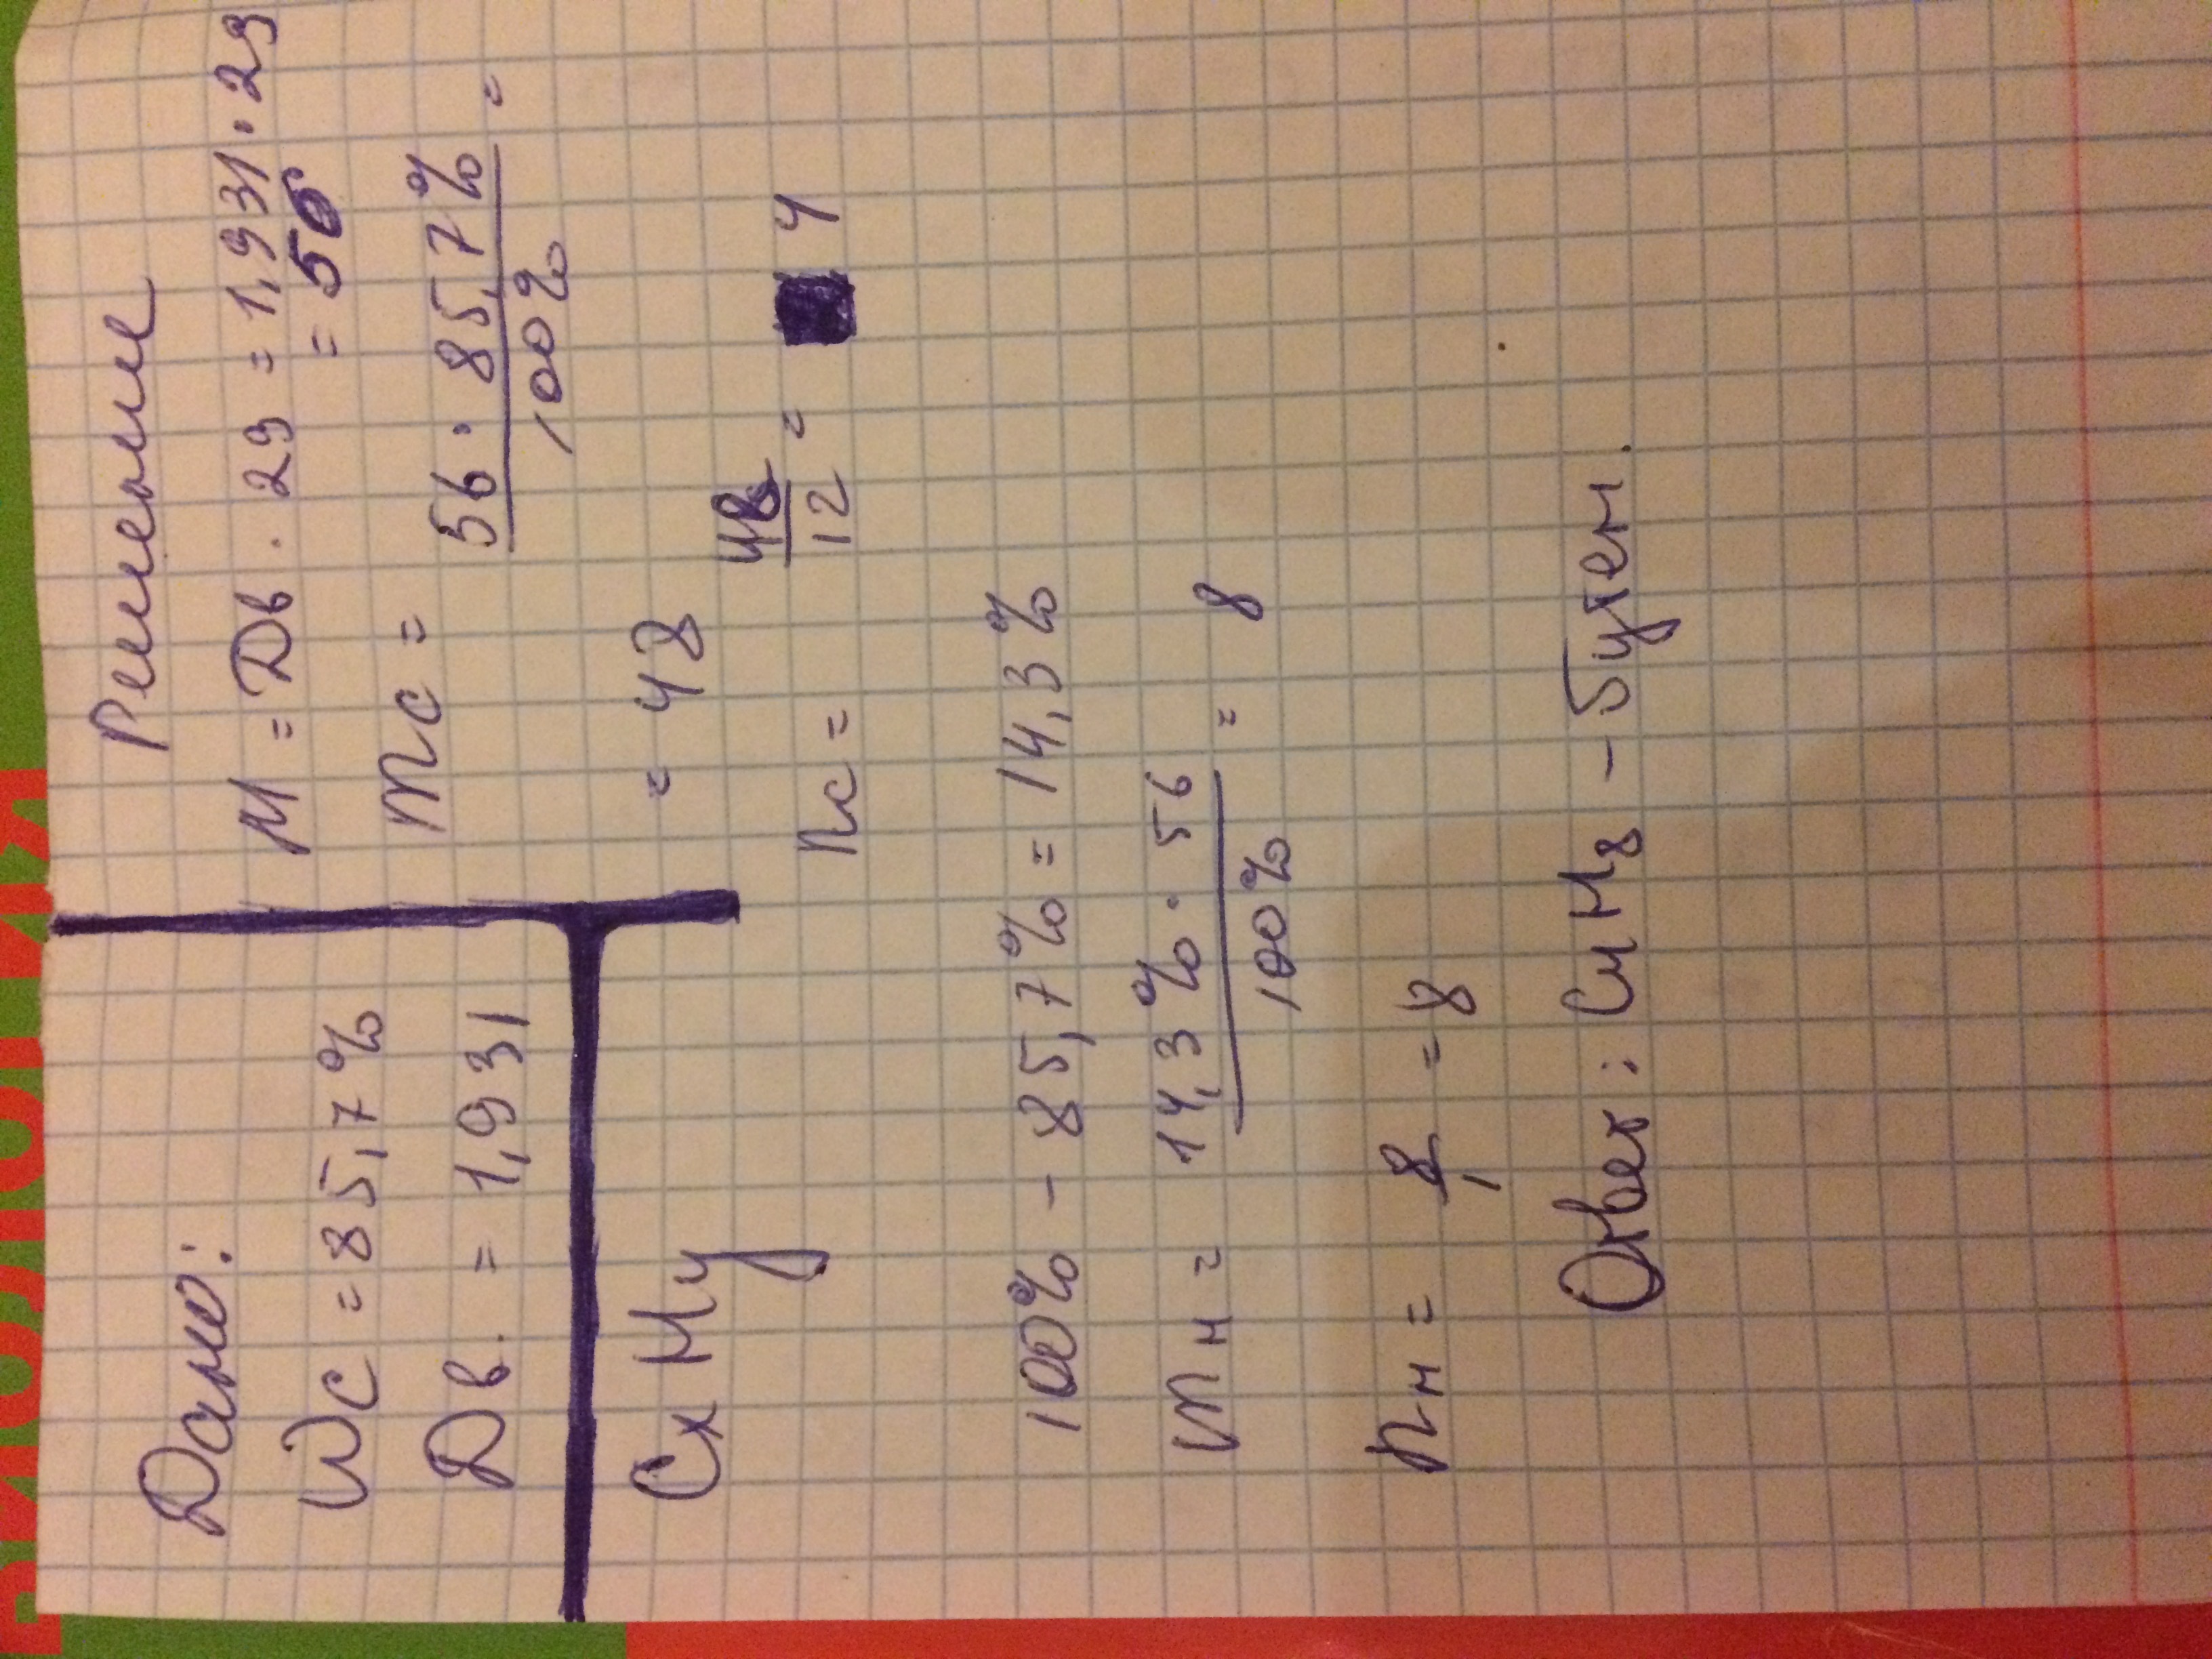 Дано:
Wc = 85,7%
Дв. = 1,931
CxHy
Решение
M = Дв. 29 = 1,931 . 29
= 56
mc = 56 . 85,7% / 100% =
= 48
nc = 48/12 = 4
100% - 85,7% = 14,3%
mн = 14,3% . 56 / 100% = 8
nн = 8/1 = 8
Ответ: C4H8 - бутен.